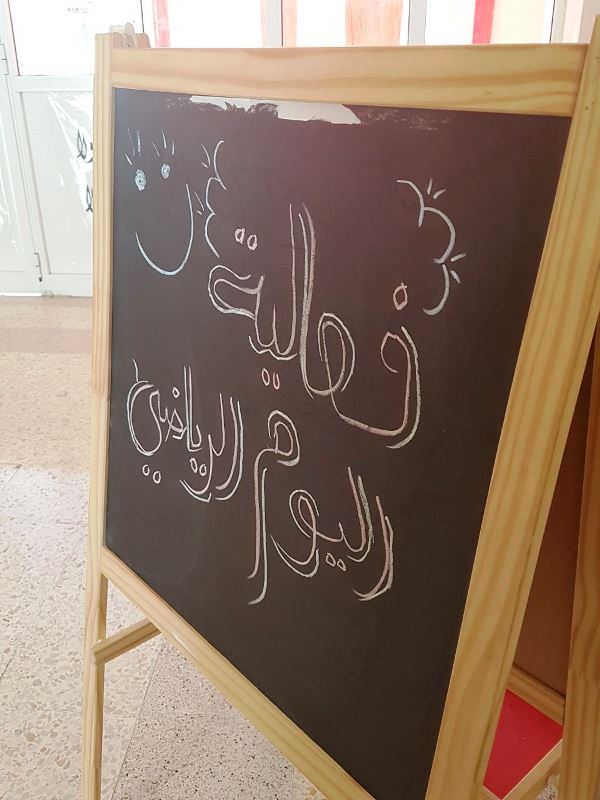 فعالية
اليوم الرياضي